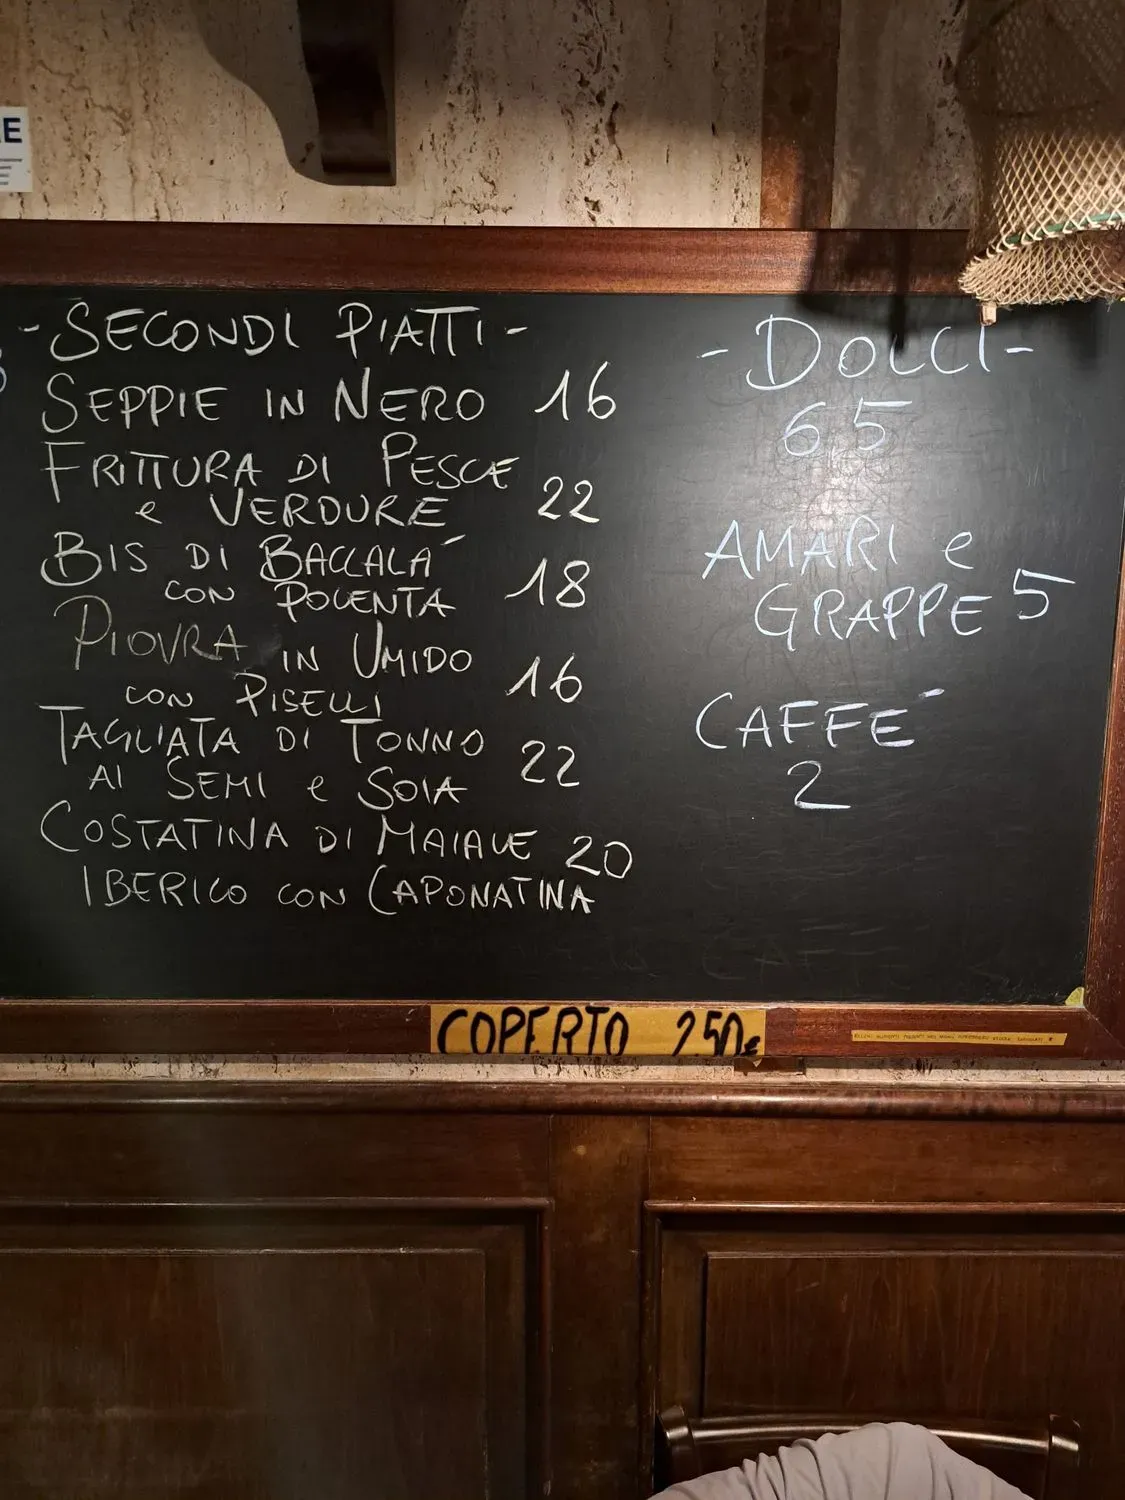 E
- SECONDI PIATTI -
SEPPIE IN NERO 16
FRITTURA DI PESCE
e VERDURE 22
BIS DI BACCALA´
CON POLENTA 18
PIOVRA IN UMIDO
CON PISELLI 16
TAGLIATA DI TONNO
AI SEMI e SOIA 22
COSTATINA DI MAIALE 20
IBERICO CON CAPONATINA
- DOLCI -
6,5
AMARI e
GRAPPE 5
CAFFE´
2
COPERTO 2.50€